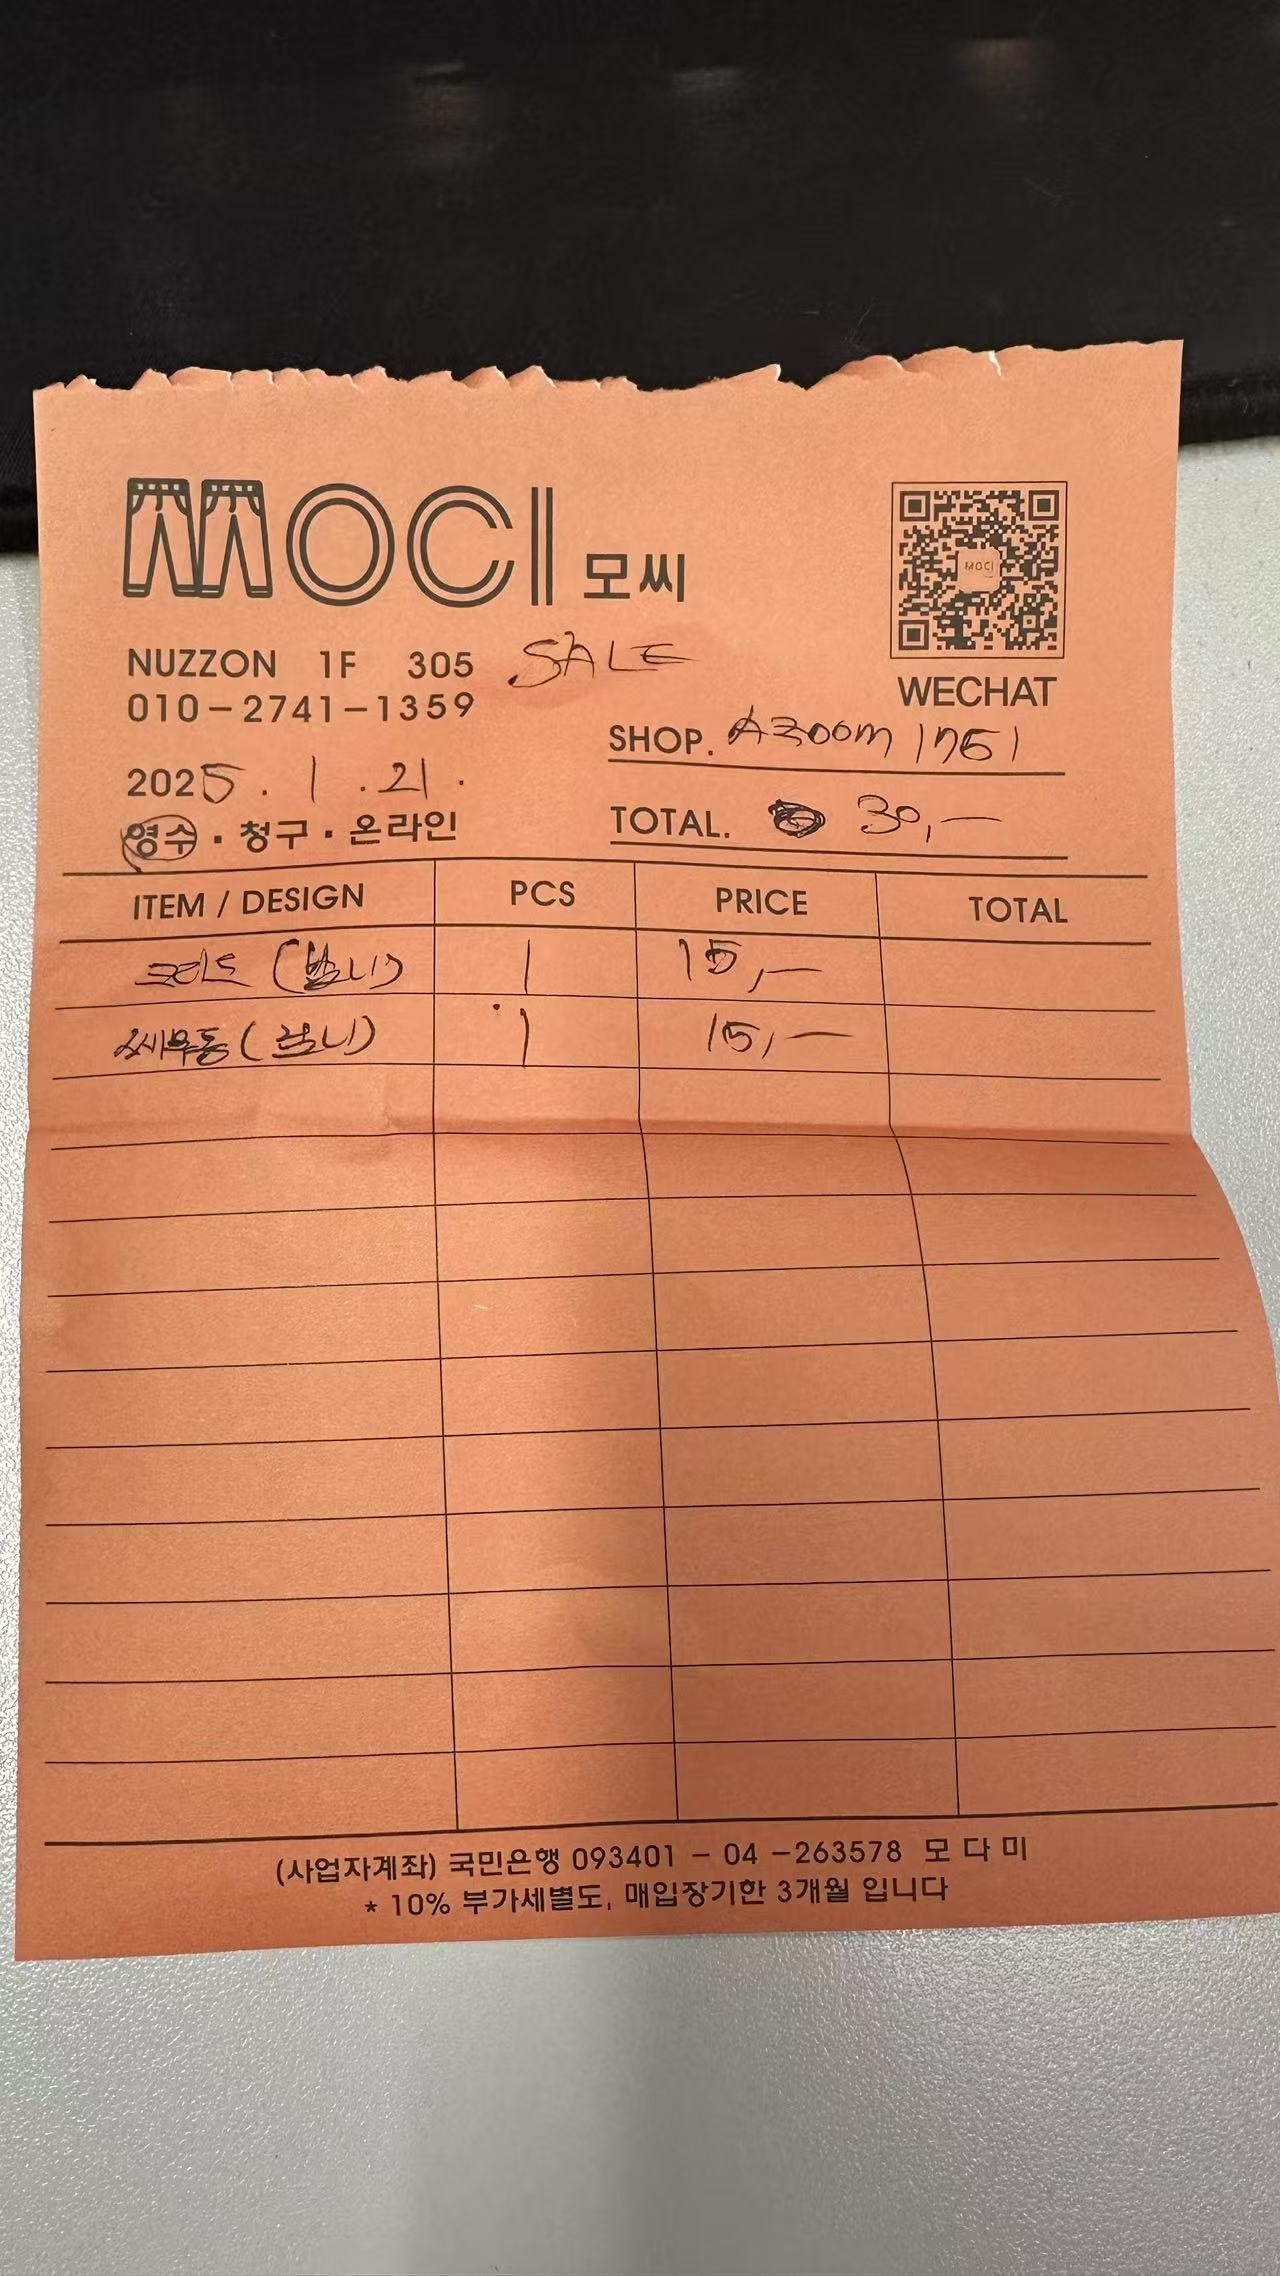 MOCI 모씨
MOCI
NUZZON 1F 305 SALE
WECHAT
010-2741-1359
SHOP. AZOOM 1761
2025.1.21.
TOTAL. 30,—
영수·청구·온라인
ITEM / DESIGN PCS PRICE TOTAL
1 15,—
1 15,—
(사업자계좌) 국민은행 093401 - 04 -263578 모다미
* 10% 부가세별도, 매입장기한 3개월 입니다